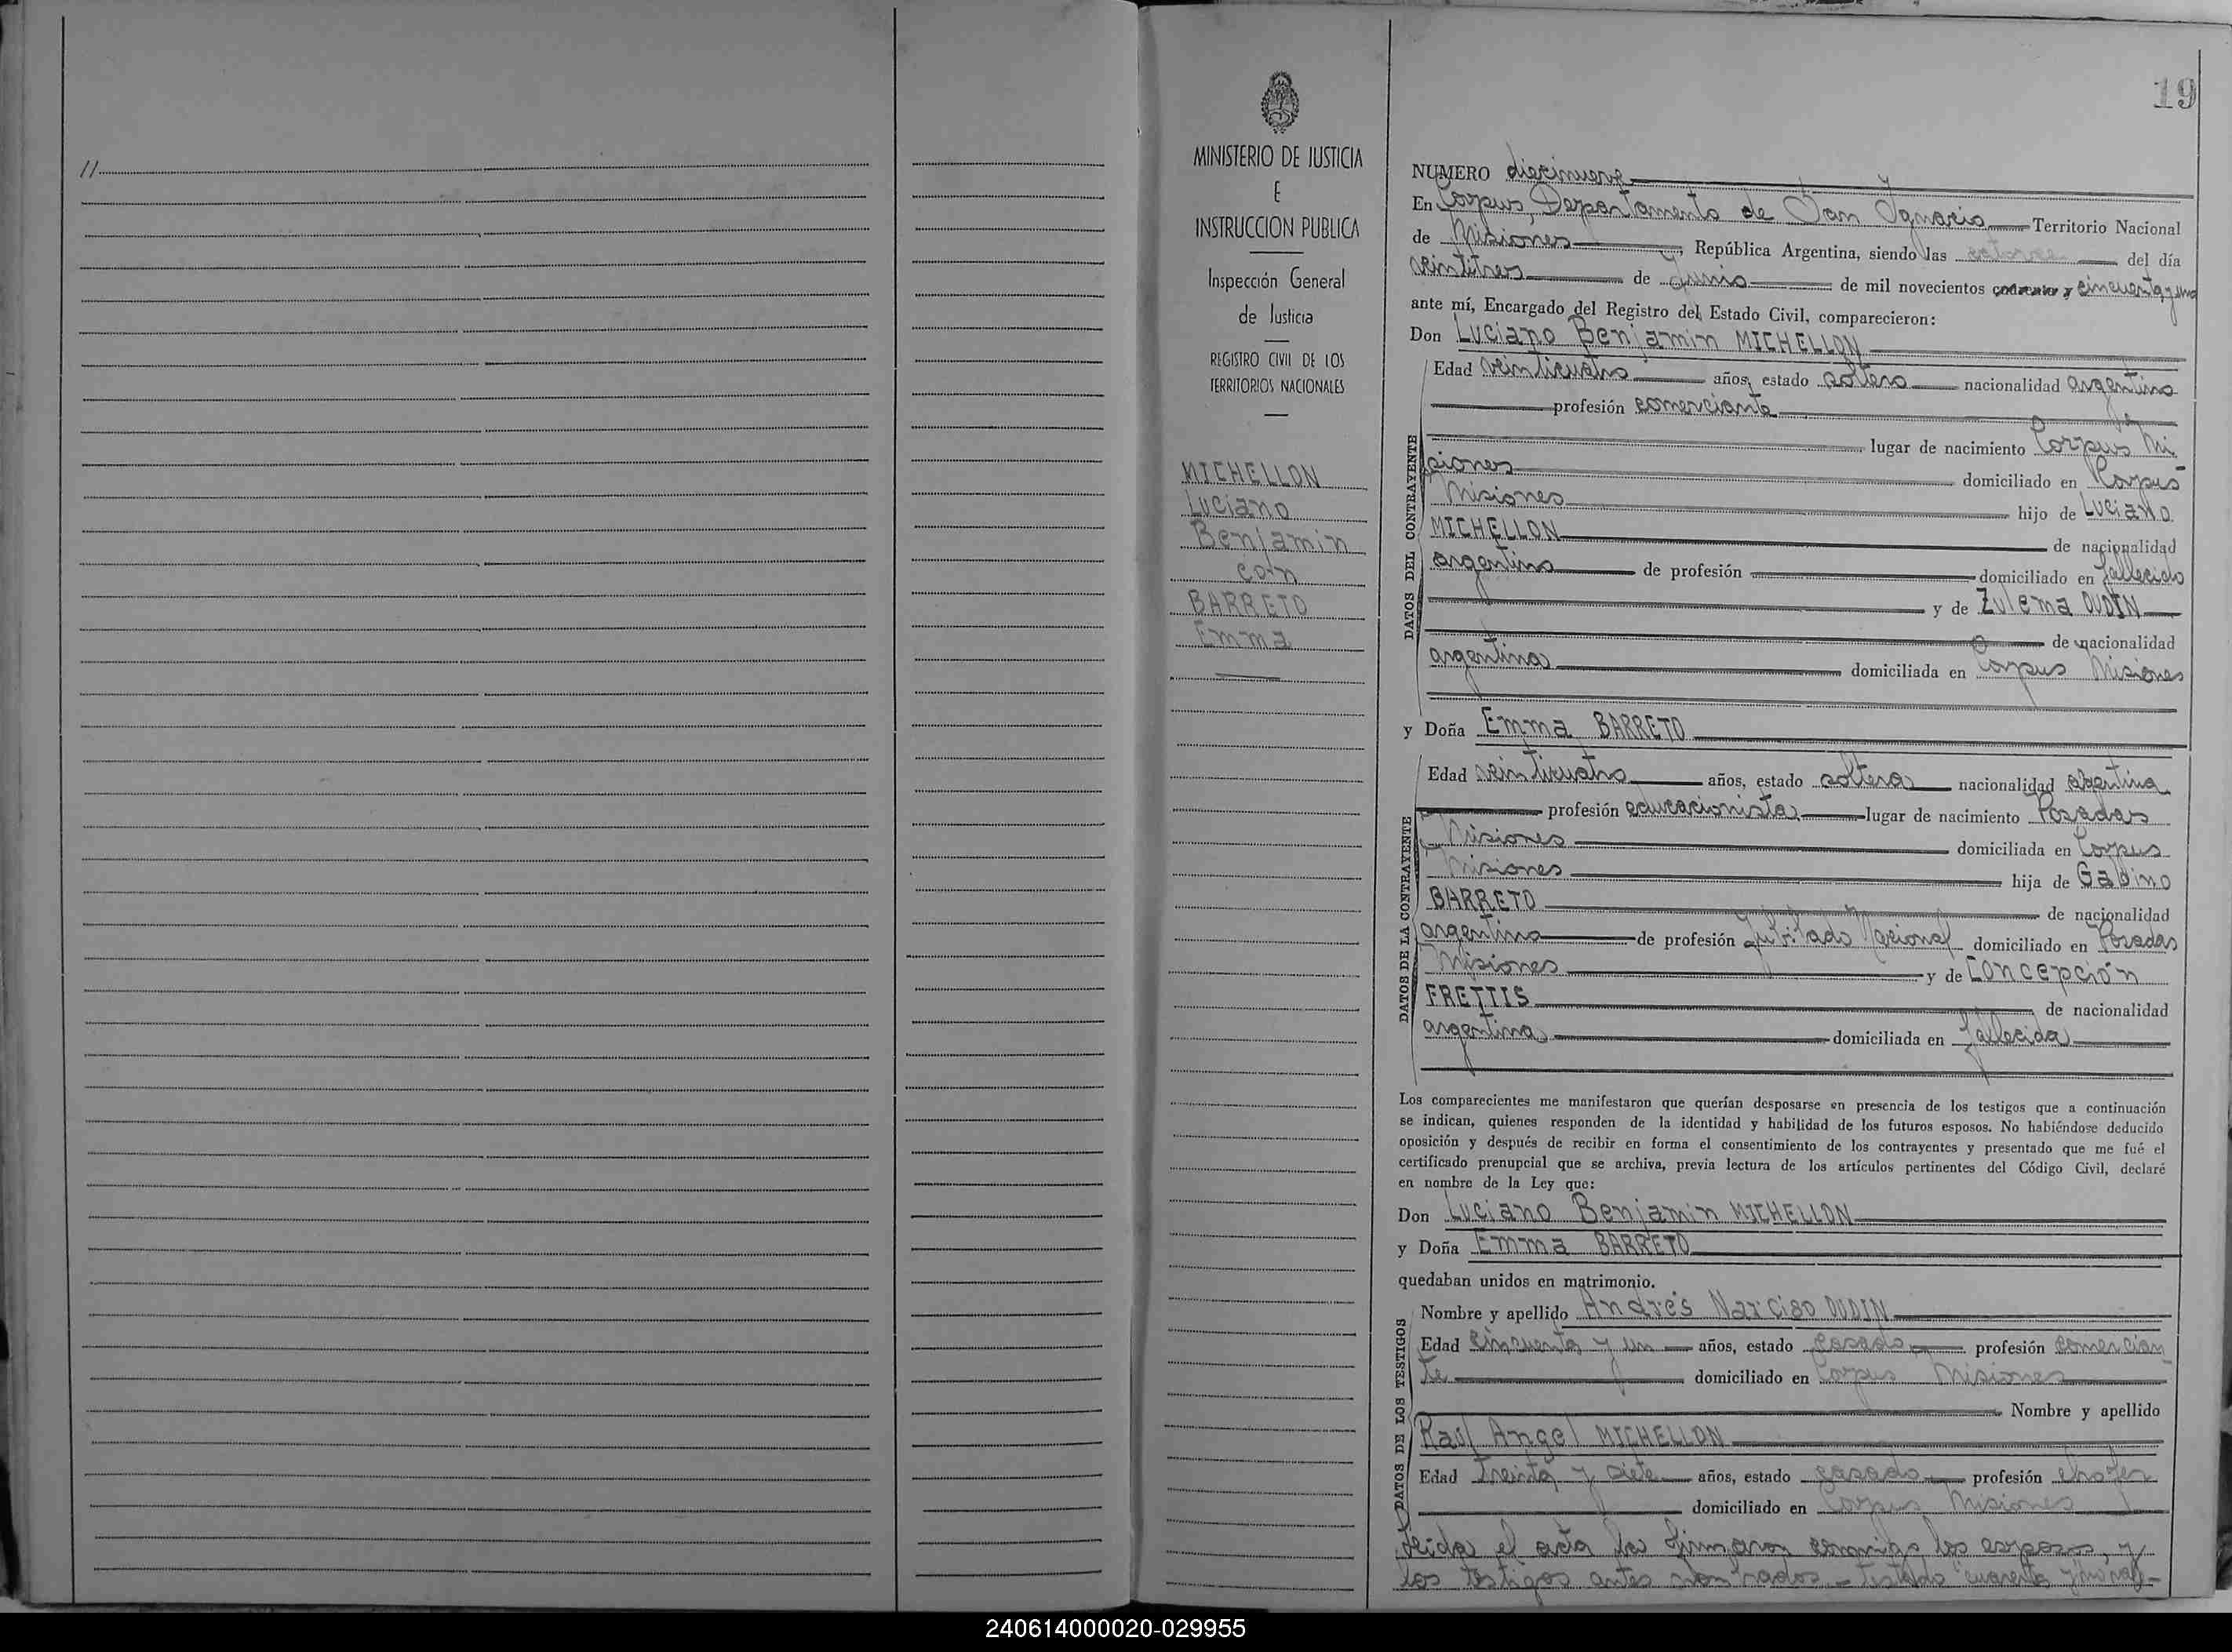 //
MINISTERIO DE JUSTICIA
E
INSTRUCCION PUBLICA
Inspección General
de Justicia
REGISTRO CIVIL DE LOS
TERRITORIOS NACIONALES
MICHELLON
Luciano
Benjamin
con
BARRETO
Emma
19
NUMERO diecinueve
En Corpus, Departamento de San Ignacio Territorio Nacional
de Misiones, República Argentina, siendo las catorce del día
veintitres de Junio de mil novecientos cuarenta y cincuenta y uno
ante mí, Encargado del Registro del Estado Civil, comparecieron:
Don Luciano Benjamin MICHELLON
DATOS DEL CONTRAYENTE
Edad veinticuatro años, estado soltero nacionalidad argentino
profesión comerciante
lugar de nacimiento Corpus Mi
siones domiciliado en Corpus
Misiones hijo de Luciano
MICHELLON de nacionalidad
argentino de profesión domiciliado en fallecido
y de Zulema DUDIN
de nacionalidad
argentina domiciliada en Corpus Misiones
y Doña Emma BARRETO
DATOS DE LA CONTRAYENTE
Edad veinticuatro años, estado soltera nacionalidad argentina
profesión educacionista lugar de nacimiento Posadas
Misiones domiciliada en Corpus
Misiones hija de Gabino
BARRETO de nacionalidad
argentino de profesión Jubilado Nacional domiciliado en Posadas
Misiones y de Concepción
FRETTIS de nacionalidad
argentina domiciliada en fallecida
Los comparecientes me manifestaron que querían desposarse en presencia de los testigos que a continuación
se indican, quienes responden de la identidad y habilidad de los futuros esposos. No habiéndose deducido
oposición y después de recibir en forma el consentimiento de los contrayentes y presentado que me fué el
certificado prenupcial que se archiva, previa lectura de los artículos pertinentes del Código Civil, declaré
en nombre de la Ley que:
Don Luciano Benjamin MICHELLON
y Doña Emma BARRETO
quedaban unidos en matrimonio.
DATOS DE LOS TESTIGOS
Nombre y apellido Andrés Narciso DUDIN
Edad cincuenta y un años, estado casado profesión comercian
te domiciliado en Corpus Misiones
Nombre y apellido
Raúl Angel MICHELLON
Edad treinta y siete años, estado casado profesión chofer
domiciliado en Corpus Misiones
Leida el acta la firmaron conmigo los esposos, y
los testigos antes nombrados.- Testado "cuarenta y" no vale-
240614000020-029955